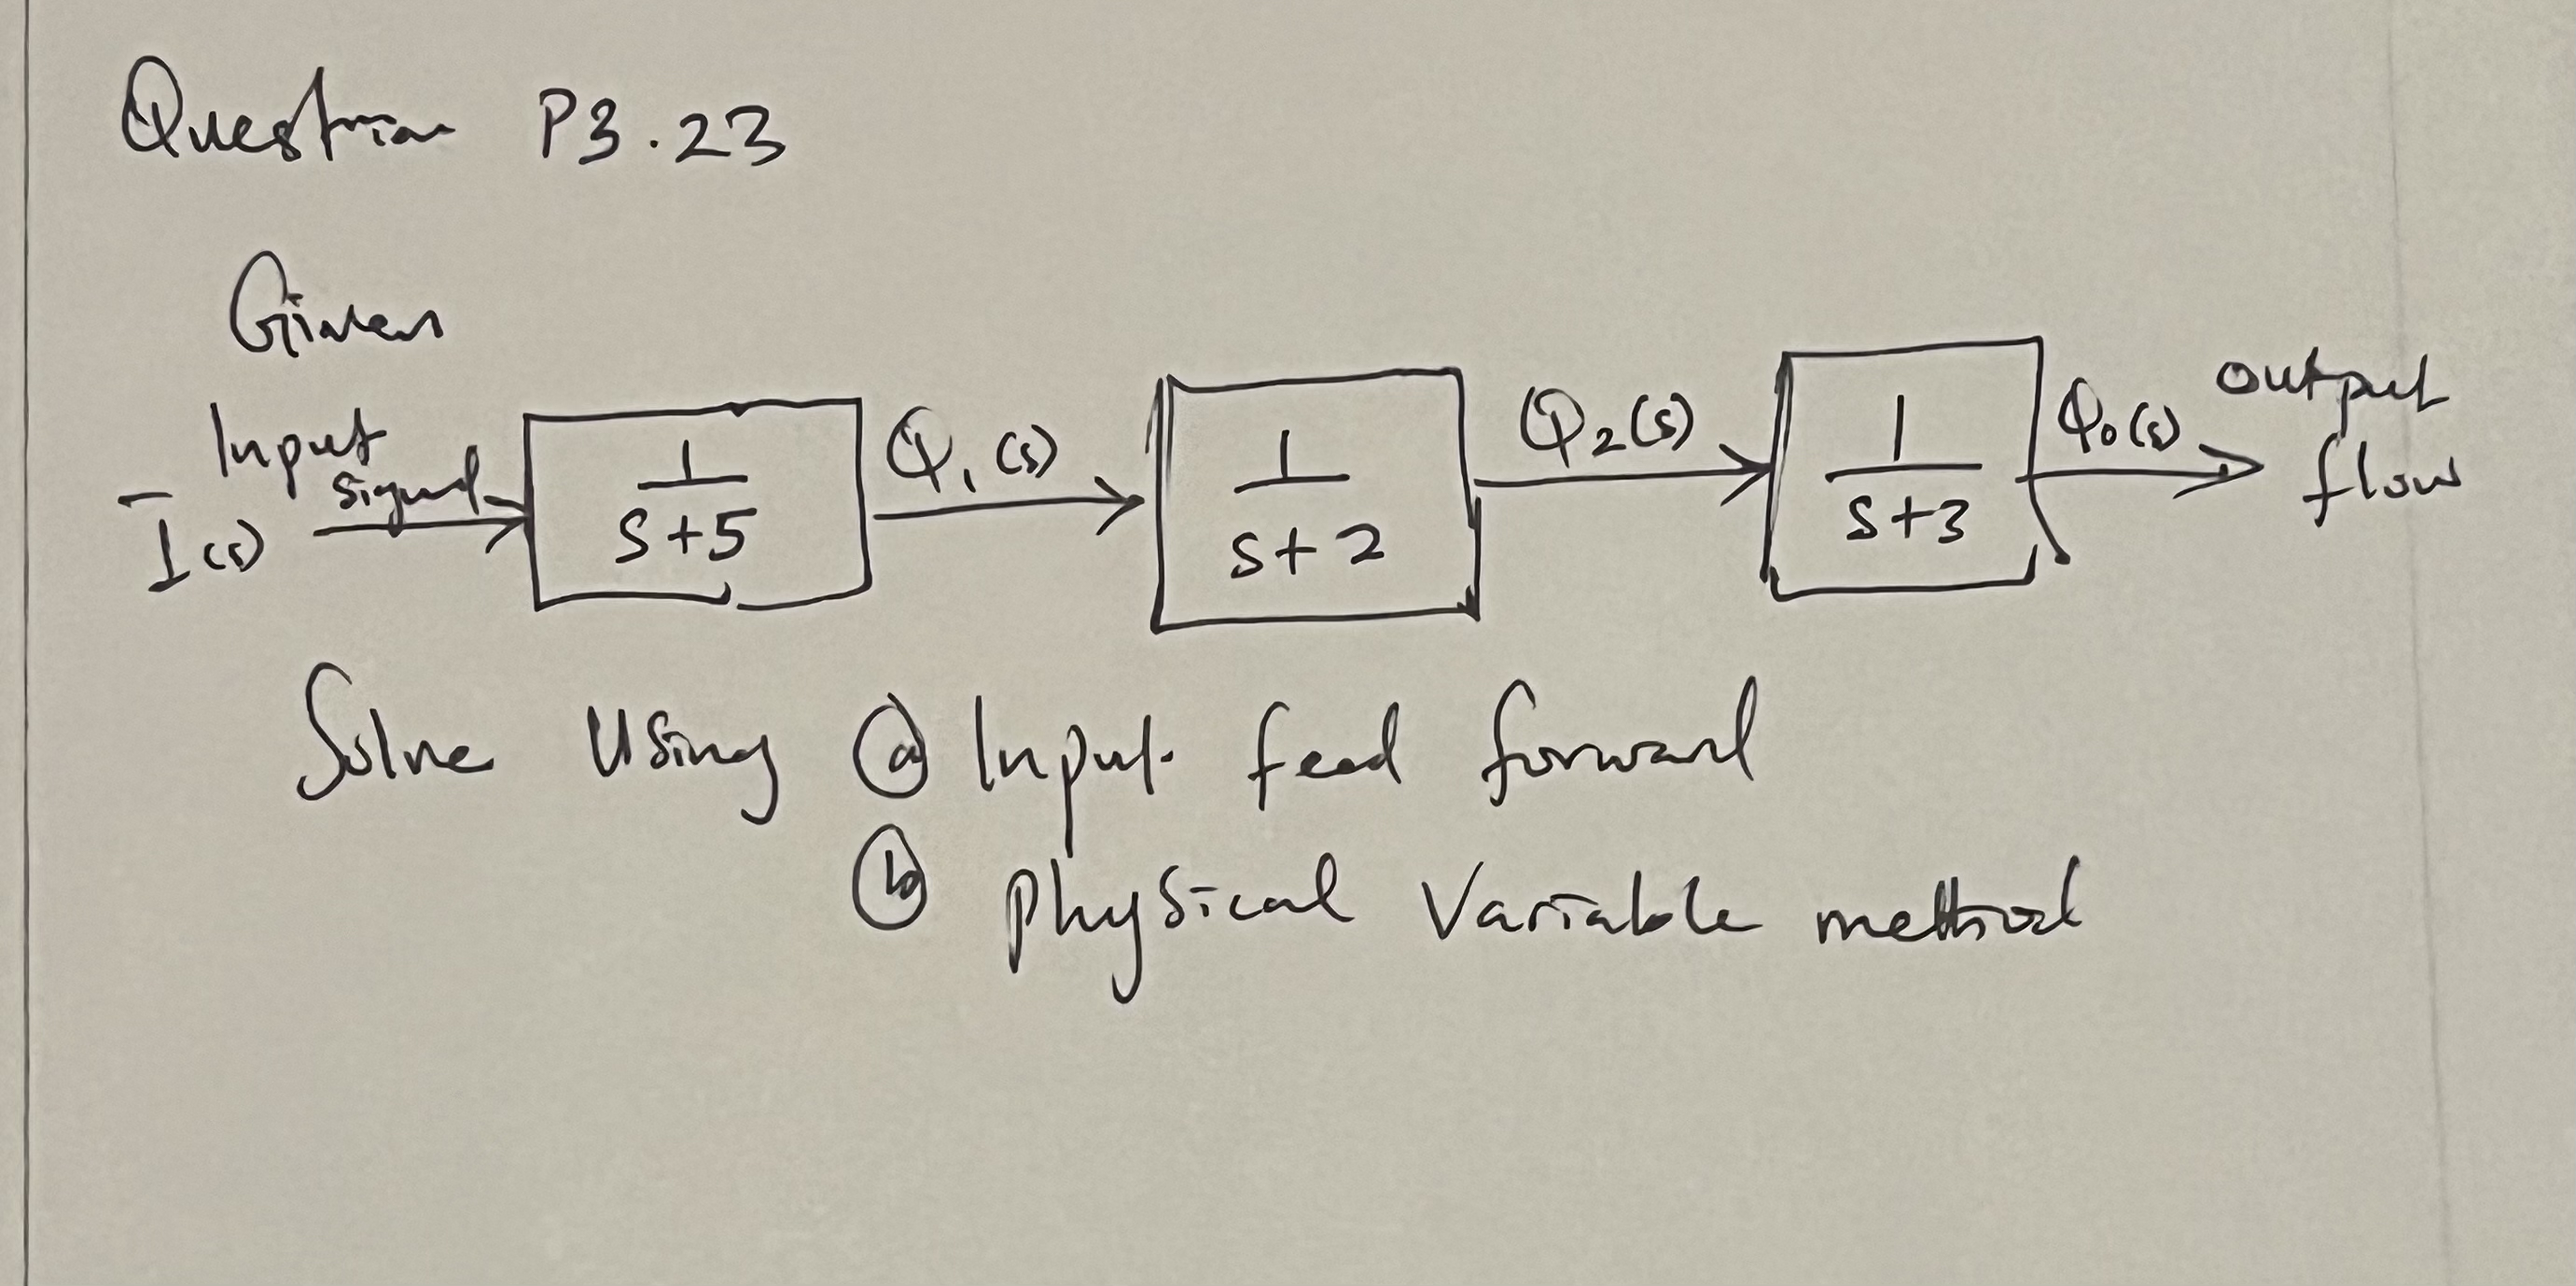 Question P3.23
Given
Input signal
I(s)
1
S+5
Q1(s)
1
S+2
Q2(s)
1
S+3
Q0(s)
output flow
Solve Using ⓐ Input feed forward
ⓑ Physical Variable method